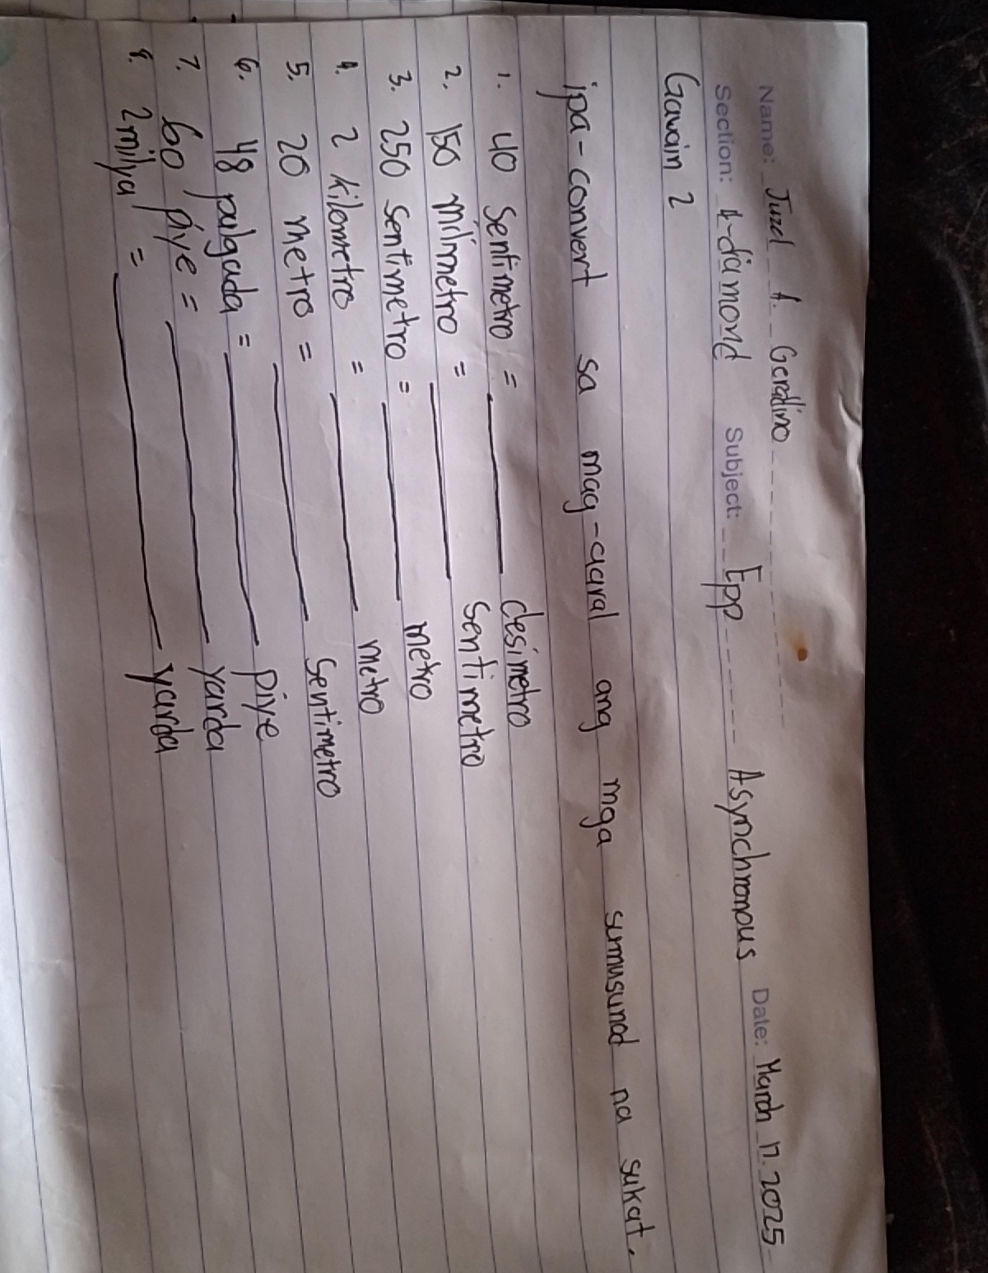 Name: Juzel A. Geradino
Section: 4-diamond Subject: Epp Asynchronous Date: March 17. 2025
Gawain 2
ipa-convert sa mag-aaral ang mga sumusunod na sukat.
1. 40 sentimetro = ______ desimetro
2. 150 milimetro = ______ sentimetro
3. 250 sentimetro = ______ metro
4. 2 kilometro = ______ metro
5. 20 metro = ______ sentimetro
6. 48 pulgada = ______ piye
7. 60 piye = ______ yarda
8. 2 milya = ______ yarda